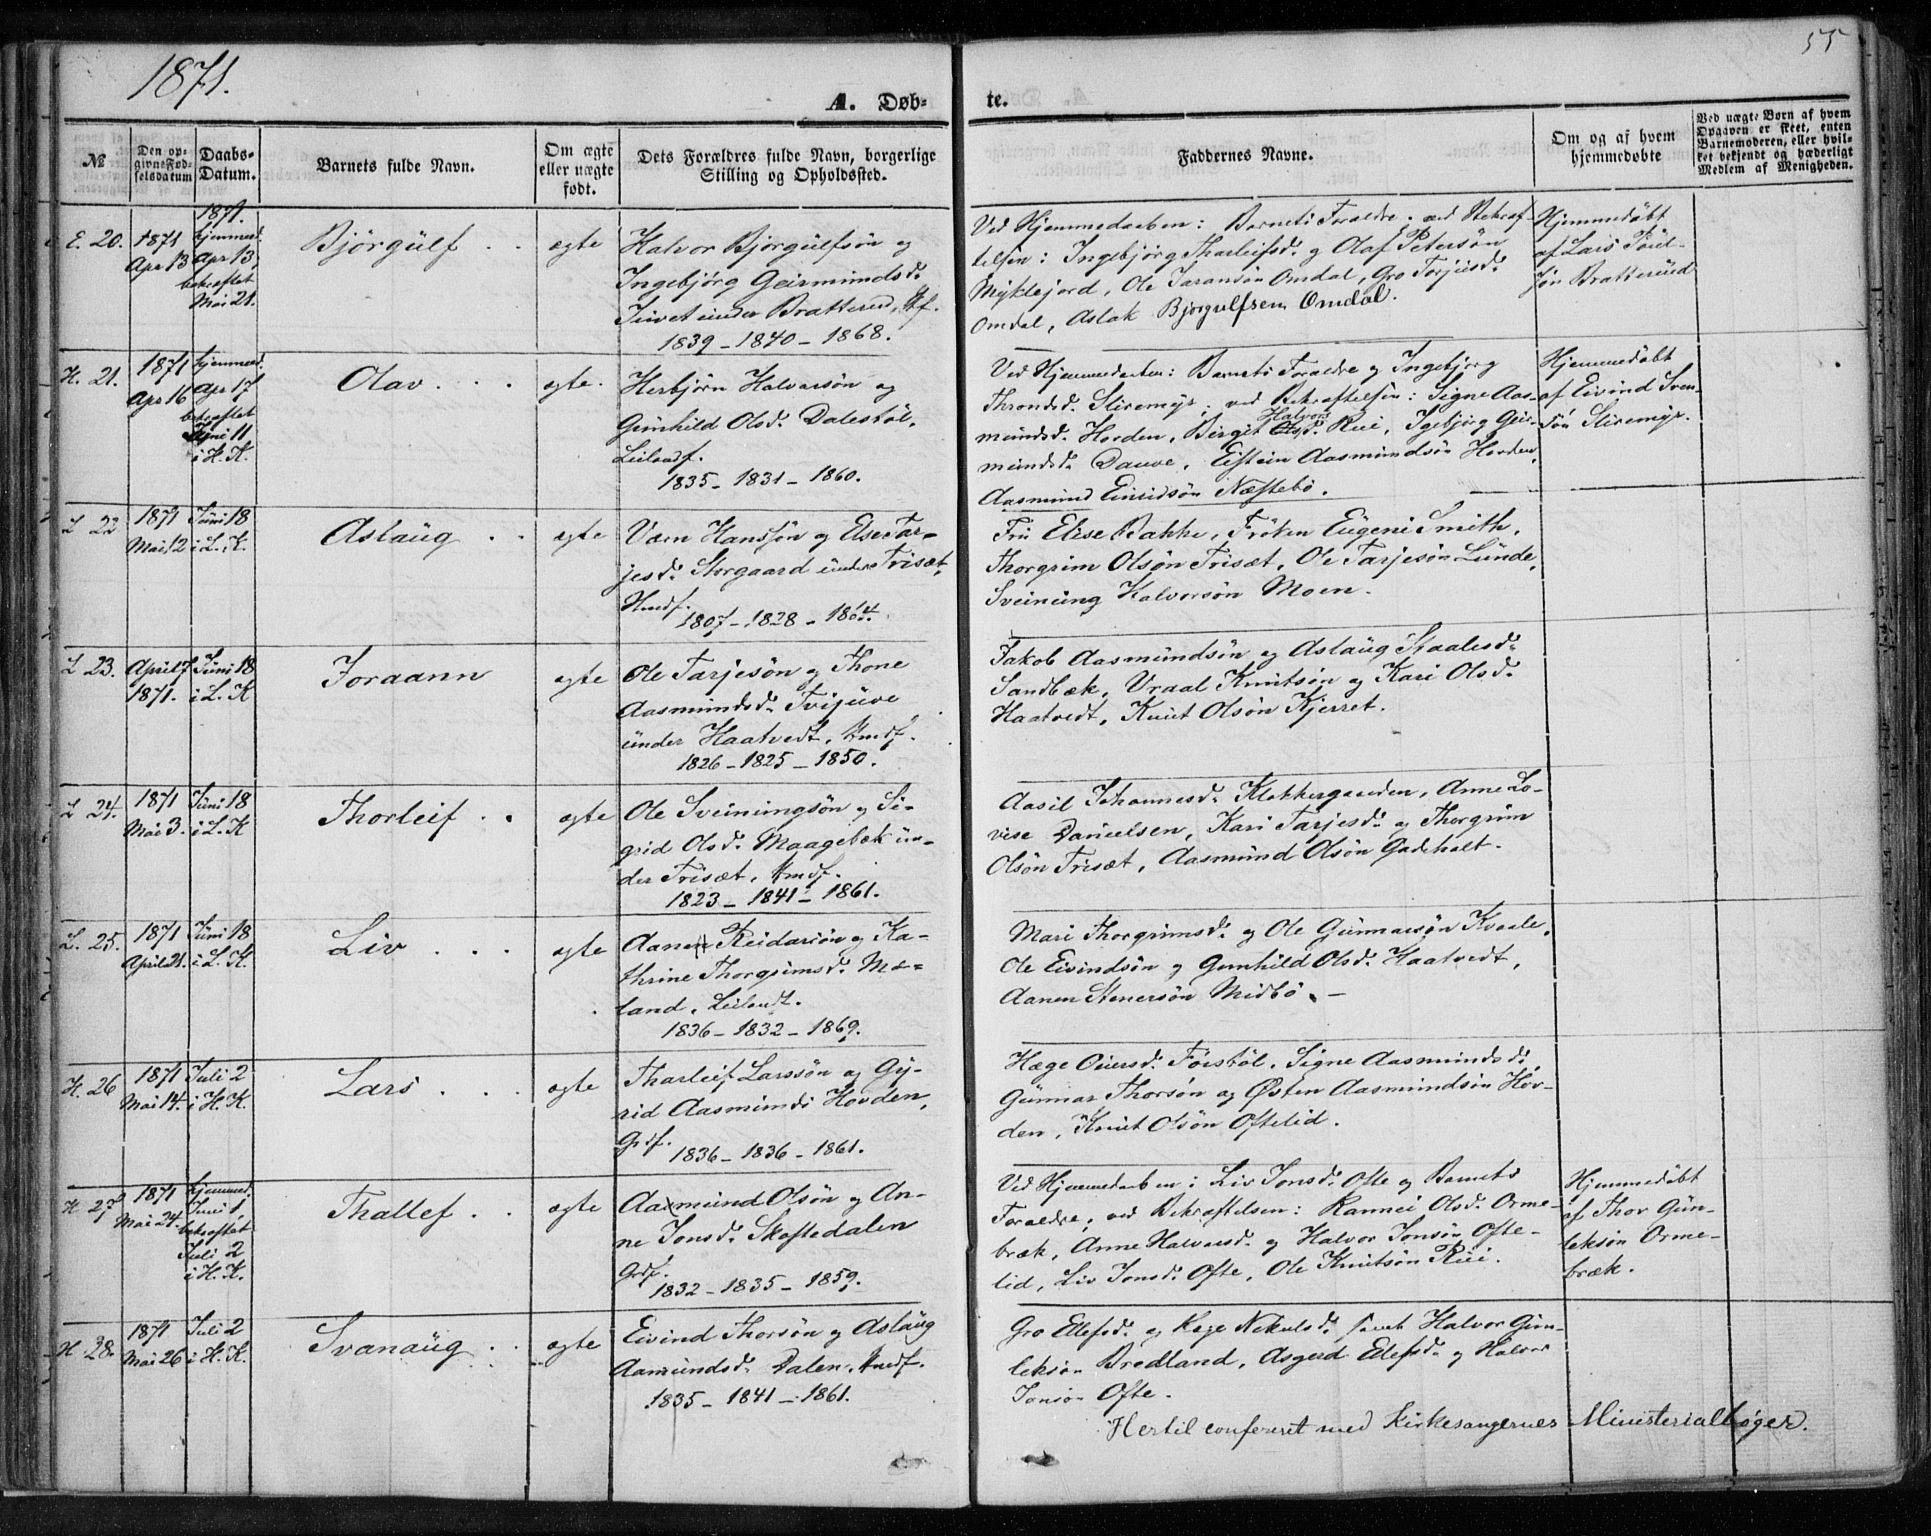 1871.
55
A. Døb-
te.
№
Den op-
givne Fød-
selsdatum
Daabs-
Datum.
Barnets fulde Navn.
Om ægte
eller uægte
født.
Dets Forældres fulde Navn, borgerlige
Stilling og Opholdssted.
Faddernes Navne.
Om og af hvem
hjemmedøbte
Ved uægte Børn af hvem
Opgaven er skeet, enten
Barnemoderen, eller hvil-
ket bekjendt og hæderligt
Medlem af Menigheden.
E. 20.
1871
Apr 13
1871.
hjemmed.
Apr 13,
bekræftet
Mai 21.
Björgülf
ægte
Halvor Björgülfsön og
Ingebjörg Geirmündsd.
Jüvet ünder Bratterud, Hf.
1839 - 1840 - 1868.
Ved Hjemmedaaben: Barnets Forældre; ved Bekræf-
telsen: Ingebjörg Tharleifsd. og Olaf Petersön
Myklejord, Ole Jaransön Omdal, Gro Torjüsd.
Omdal, Aslak Bjørgulfsen Omdal.
Hjemmedøbt
af Lars Poül-
sön Bratterüd
H. 21.
1871
Apr 16
hjemmed.
Apr 17
bekræftet
Jüni 11
i H. K.
Olav
ægte.
Herbjörn Halvorsön og
Günhild Olsd. Dalestöl,
Leilendf.
1835 - 1831 - 1860.
Ved Hjemmedaaben: Barnets Forældre og Ingebjørg
Throndsd. Sliremyr; ved Bekræftelsen: Signe Aas-
mündsd. Hovden, Birgit Halvors Olsd. Rüi, Igebjörg Geir-
mündsd. Dauve, Eistein Aasmündsön Hovden,
Aasmünd Einridsön Næstebö.
Hjemmedøbt
af Eivind Sven-
sön Sliremyr.
L 22
1871
Mai 12
Jüni 18
i L. K.
Aslaüg
ægte
Værn Hanssön og Else Tar-
jesd. Storgaard ünder Trisæt,
Hmdf.
1807 - 1828 - 1864.
Frü Elise Bakke, Fröken Eügeni Smith,
Thorgrim Olsön Trisæt, Ole Tarjesön Lünde,
Sveinüng Halvorsön Moen.
L 23.
April 7
1871.
Jüni 18
i L. K
Joraann
ægte
Ole Tarjesön og Thone
Aasmündsd. Tvijüve
ünder Haatvedt, Hmdf.
1826 - 1825 - 1850.
Jakob Aasmündsön og Aslaüg Staalesd.
Sandbæk, Vraal Knütsön og Kari Olsd.
Haatvedt, Knüt Olsön Kjerret.
L 24.
1871
Mai 3.
Jüni 18
i L. K
Thorleif
ægte
Ole Sveinüngsön og Si-
grid Olsd. Maagebæk ün-
der Trisæt, Hmdf.
1823 - 1841 - 1861.
Aasil Johannesd. Klokkergaarden, Anne Lo-
vise Danielsen, Kari Tarjesd. og Thorgrim
Olsön Trisæt, Aasmünd Olsön Gadeholt.
L. 25.
1871
April 21.
Jüni 18
i L. K.
Liv
ægte
Aanen Reidarsön og Ka-
thrine Thorgrimsd. Mæ-
land, Leilendt.
1836 - 1832 - 1869.
Mari Thorgrimsd. og Ole Günnarsön Kvaale,
Ole Eivindsön og Gunhild Olsd. Haatvedt,
Aanen Stenersön Midbö. -
H. 26
1871
Mai 14.
Juli 2
i H. K.
Lars
ægte
Tharleif Larssön og Gü-
rid Aasmünds Hovden,
Grdf.
1836 - 1836 - 1861.
Hæge Eiversd. Førstöl, Signe Aasmündsd.
Günnar Thorsön og Østen Aasmündsön Hov-
den, Knüt Olsön Oftelid.
H 27
1871
Mai 24.
hjemmed.
Juni 1,
bekræftet
Juli 2
i H. K.
Thallef
ægte
Aasmünd Olsön og An-
ne Jonsd. Skoftedalen
Grdf.
1832 - 1835 - 1859.
Ved Hjemmedaaben: Liv Jonsd. Ofte og Barnets
Forældre; ved Bekræftelsen: Rannei Olsd. Orme-
bræk, Anne Halvorsd. og Halvor Jonsön Ofte-
lid, Liv Jonsd. Ofte, Ole Knütsön Rüi.
Hjemmedøbt
af Thor Gün-
leksön Orme-
bræk.
H. 28.
1871
Mai 26
Juli 2
i H. K.
Svanaüg
ægte
Eivind Thorsön og Aslaüg
Aamündsd. Dalen, Hmdf.
1835 - 1841 - 1861.
Gro Ellefsd. og Hæge Nikulsd. samt Halvor Gün-
leksön Bredland, Asgerd Ellefsd. og Halvor
Jonsön Ofte.
Hertil confereret med Kirkesangernes Ministerialbøger.